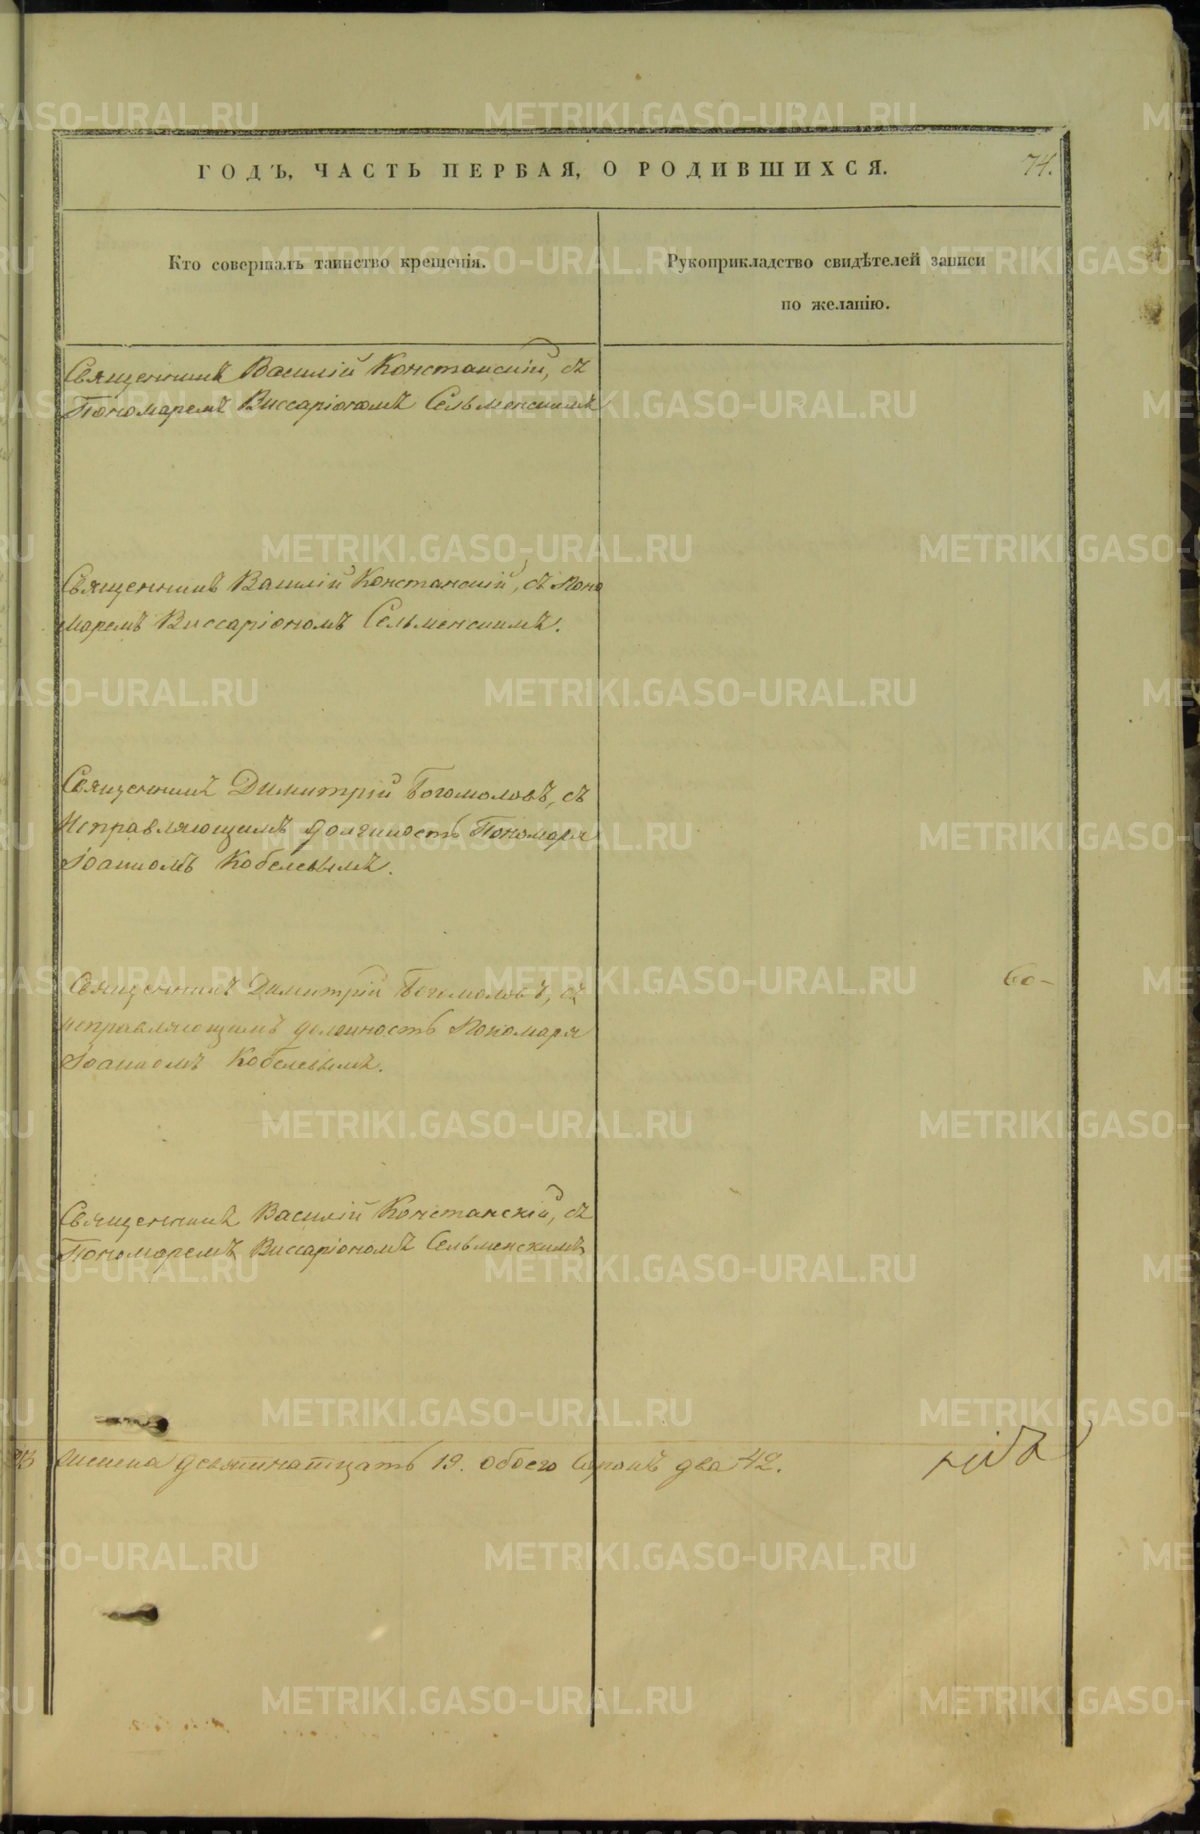 ГОДЪ, ЧАСТЬ ПЕРВАЯ, О РОДИВШИХСЯ. 74.
Кто совершалъ таинство крещенія.
Рукоприкладство свидѣтелей записи
по желанію.
Священникъ Василій Констанскій, съ
Пономаремъ Виссаріономъ Сельменскимъ
Священникъ Василій Констанскій, съ Поно
маремъ Виссаріономъ Сельменскимъ.
Священникъ Димитрій Богомоловъ, съ
исправляющимъ должность Пономаря
Іоанномъ Кобелевымъ.
Священникъ Димитрій Богомоловъ, съ
исправляющимъ должность Пономаря
Іоанномъ Кобелевымъ.
Священникъ Василій Констанскій, съ
Пономаремъ Виссаріономъ Сельменскимъ
женска девятнатцать 19. обоего сорокъ два 42.
METRIKI.GASO-URAL.RU